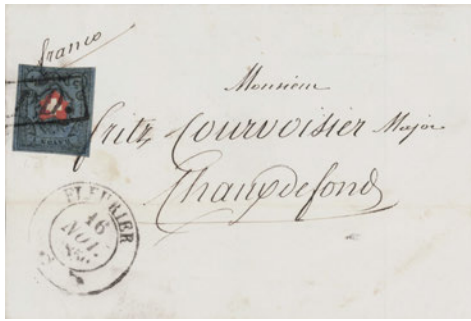 franco
Monsieur
Fritz Courvoisier Major
Chauxdefonds
FLEURIER
16
NOV.